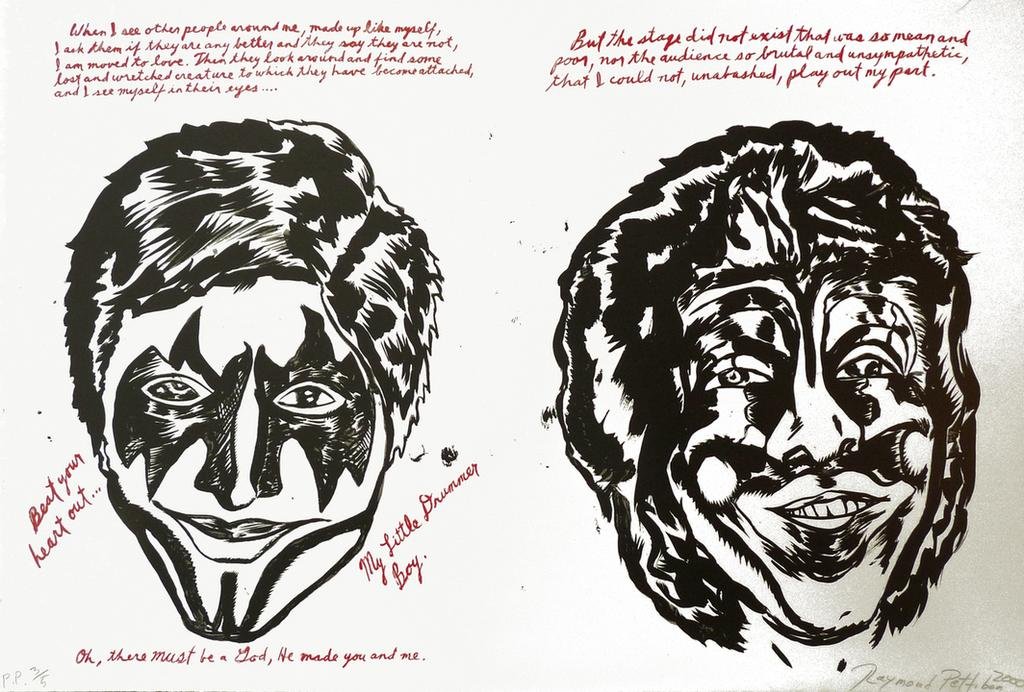 When I see other people around me, made up like myself,
I ask them if they are any better and they say they are not,
I am moved to love. Then they look around and find some
lost and wretched creature to which they have become attached,
and I see myself in their eyes....
But the stage did not exist that was so mean and
poor, nor the audience so brutal and unsympathetic,
that I could not, unabashed, play out my part.
Beat your
heart out...
My Little Drummer
Boy.
Oh, there must be a God, He made you and me.
P.P. 3/5
Raymond Pettibon 2000